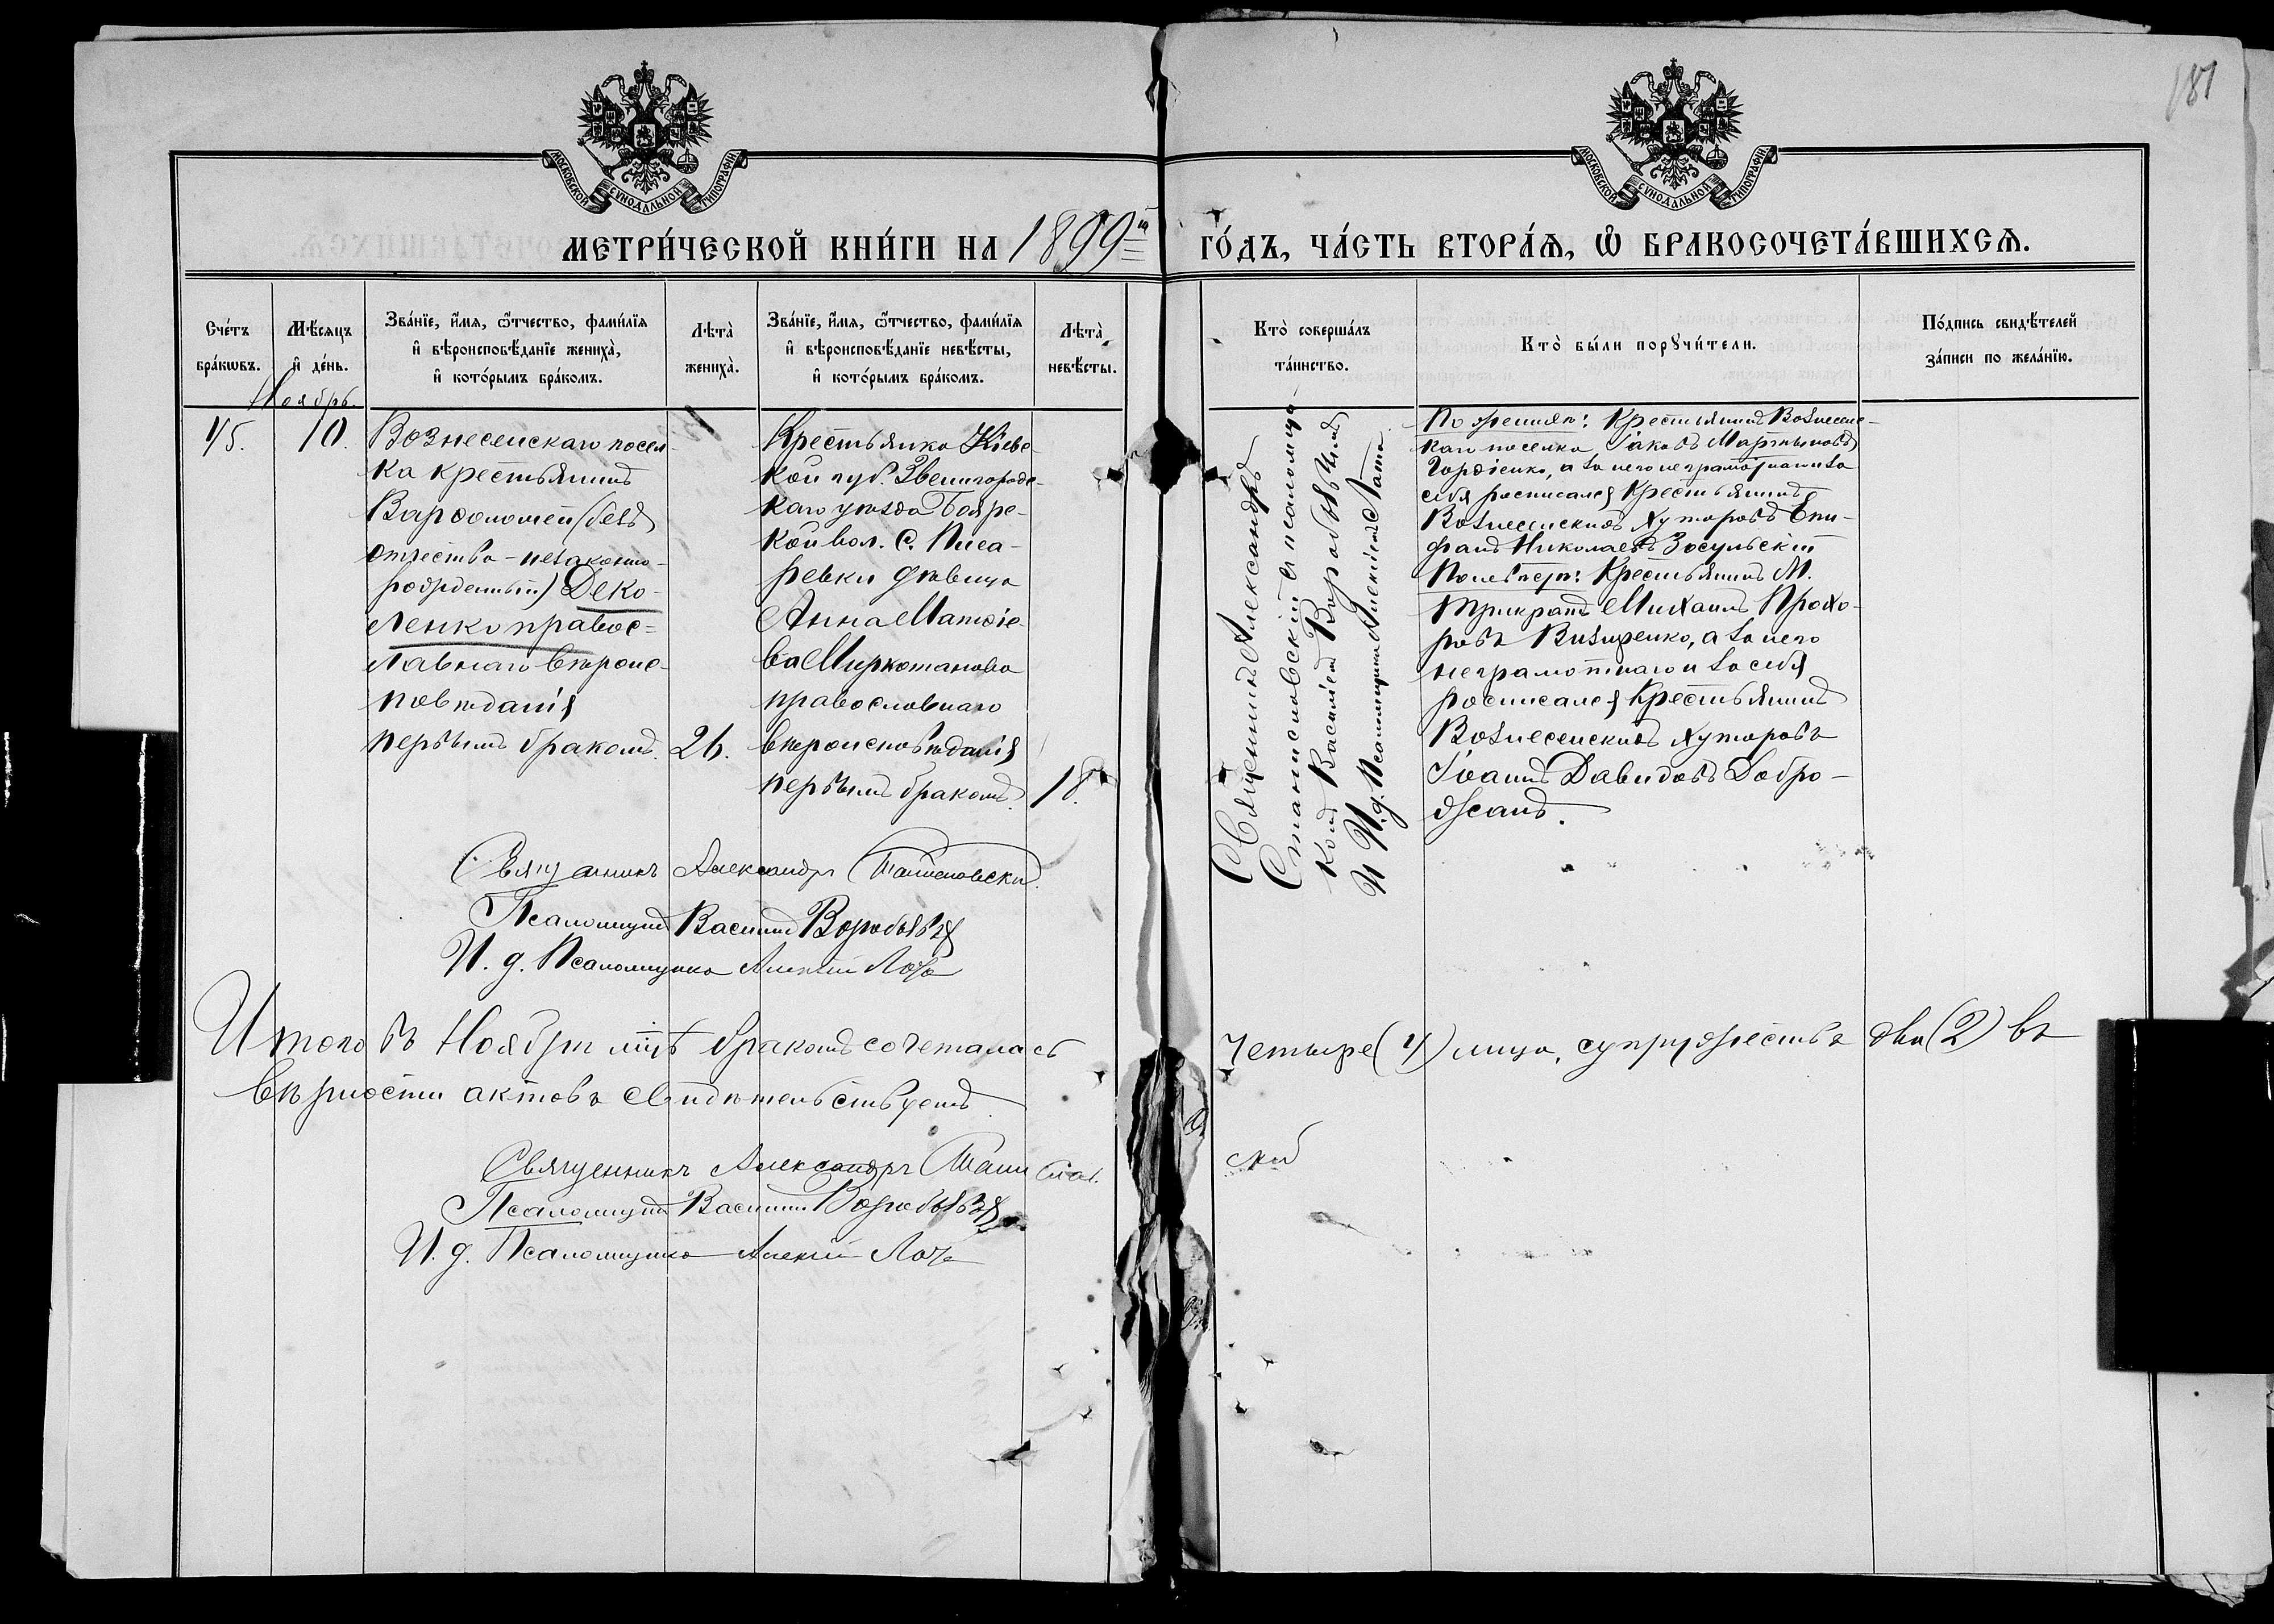 181
МОСКОВСКОЙ СУНОДАЛЬНОЙ ТИПОГРАФІИ.
МОСКОВСКОЙ СУНОДАЛЬНОЙ ТИПОГРАФІИ.
МЕТРИ́ЧЕСКОЙ КНИ́ГИ НА 1899й ГО́ДЪ, ЧА́СТЬ ВТОРА́Ѧ, Ѡ҆ БРАКОСОЧЕТА́ВШИХСѦ.
Сче́тъ
бра́кѡвъ.
Мѣ́сяцъ
и҆ де́нь.
Зва́нїе, и҆́мя, ѻ҆́тчество, фами́лїя
и҆ вѣроисповѣ́данїе жениха̀,
и҆ кото́рымъ бра́комъ.
Лѣта̀
жениха̀.
Зва́нїе, и҆́мя, ѻ҆́тчество, фами́лїя
и҆ вѣроисповѣ́данїе невѣ́сты,
и҆ кото́рымъ бра́комъ.
Лѣта̀
невѣ́сты.
Кто̀ соверша́лъ
та́инство.
Кто̀ бы́ли порꙋчи́тели.
По́дпись свидѣ́телей
за́писи по жела́нїю.
Ноябрь.
15.
10.
Вознесенскаго посел-
ка крестьянинъ
Варѳоломей (безъ
отчества - незаконно-
рожденный) Деко-
ленко правос=
лавнаго вѣроис-
повѣданія
первымъ бракомъ.
26.
Крестьянка Кіевс-
кой губ. Звенигородс-
каго уѣзда Боярс-
кой вол. С. Писа-
ревки дѣвица
Анна Матѳіе-
ва Миркотанова
православнаго
вѣроисповѣданія
первымъ бракомъ.
18.
Священникъ Александръ
Станиславскій и псаломщи-
комъ Василіемъ Воробьевымъ
и И.д. Псаломщика Алексіемъ Лата
По женихѣ: Крестьянинъ Вознесенс-
каго поселка Іаковъ Мартыновъ
Гордіенко, а за него неграмотнаго и за
себя росписался Крестьянинъ
Вознесенскихъ хуторовъ Епи-
фанъ Николаевъ Зосульскій
По невѣстѣ: Крестьянинъ М.
Трикратъ Михаилъ Прохо-
ровъ Визиренко, а за него
неграмотнаго и за себя
росписался Крестьянинъ
Вознесенскихъ хуторовъ
Іоаннъ Давидовъ Добро-
жанъ.
Священникъ Александръ Станиславскій.
Псаломщикъ Василій Воробьевъ
И. д. Псаломщика Алексій Лата
Итого въ Ноябрѣ м͠цѣ бракомъ сочеталась четыре (4) лица, супружествъ два (2) въ
вѣрности актовъ свидѣтельствуемъ.
Священникъ Александръ Станиславскій
Псаломщикъ Василій Воробьевъ
И. д. Псаломщика Алексій Лата